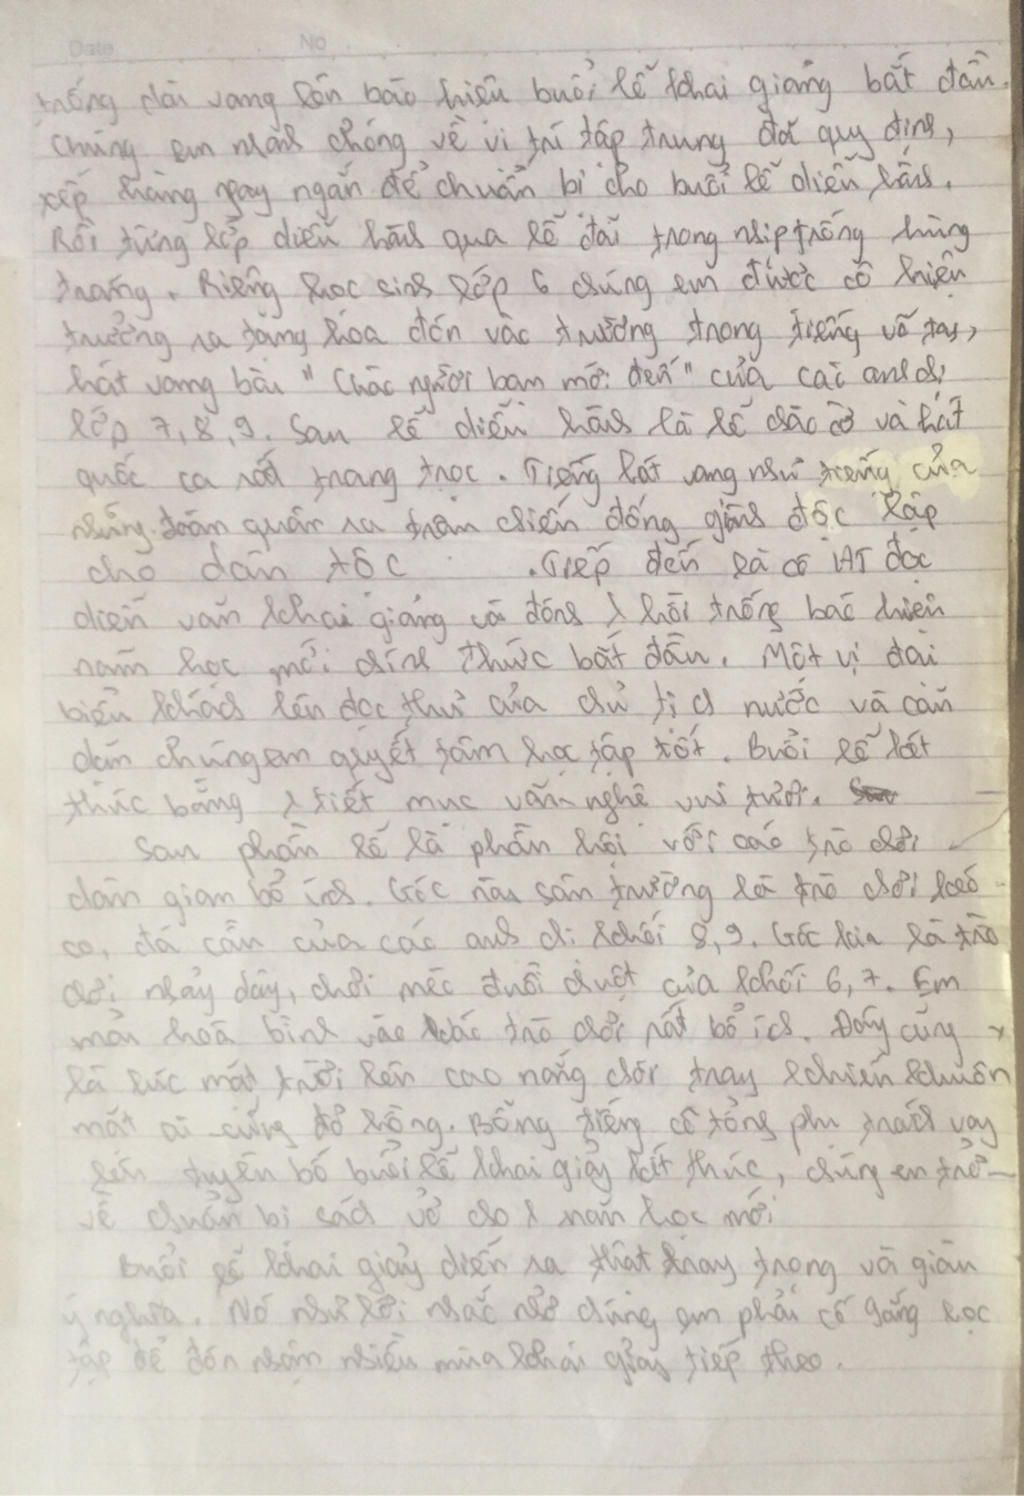 Date No
trống dài vang lên báo hiệu buổi lễ khai giảng bắt đầu.
Chúng em nhanh chóng về vị trí tập trung đã quy định,
xếp hàng ngay ngắn để chuẩn bị cho buổi lễ diễu hành.
Rồi từng lớp diễu hành qua lễ đài trong nhịp trống hùng
tráng. Riêng học sinh lớp 6 chúng em được cô hiệu
trưởng ra tặng hoa đón vào trường trong tiếng vỗ tay,
hát vang bài "Chào người bạn mới đến" của các anh chị
lớp 7, 8, 9. Sau lễ diễu hành là lễ chào cờ và hát
quốc ca rất trang trọc. Tiếng hát vang như tiếng của
những đoàn quân ra trận chiến đống giành độc lập
cho dân tộc .Tiếp đến là cô HT đọc
diễn văn khai giảng và đánh 1 hồi trống báo hiệu
năm học mới chính thức bắt đầu. Một vị đại
biểu khách lên đọc thư của chủ tịch nước và căn
dặn chúng em quyết tâm học tập tốt. Buổi lễ kết
thúc bằng 1 tiết mục văn nghệ vui tươi.
Sau phần lễ là phần hội với các trò chơi
dân gian bổ ích. Góc này sân trường là trò chơi kéo
co, đá cầu của các anh chị khối 8, 9. Góc kia là trò
chơi nhảy dây, chơi mèo đuổi chuột của khối 6, 7. Em
mải hoà bình vào các trò chơi rất bổ ích. Đây cũng
là lúc mặt trời lên cao nắng chói trang khiến khuôn
mặt ai cũng đỏ hồng. Bỗng tiếng cô tổng phụ trách vang
lên tuyên bố buổi lễ khai giảng kết thúc, chúng em trở
về chuẩn bị sách vở cho 1 năm học mới
Buổi lễ khai giảng diễn ra thật trang trọng và giàu
ý nghĩa. Nó như lời nhắc nhở chúng em phải cố gắng học
tập để đón nhận nhiều mùa khai giảng tiếp theo.